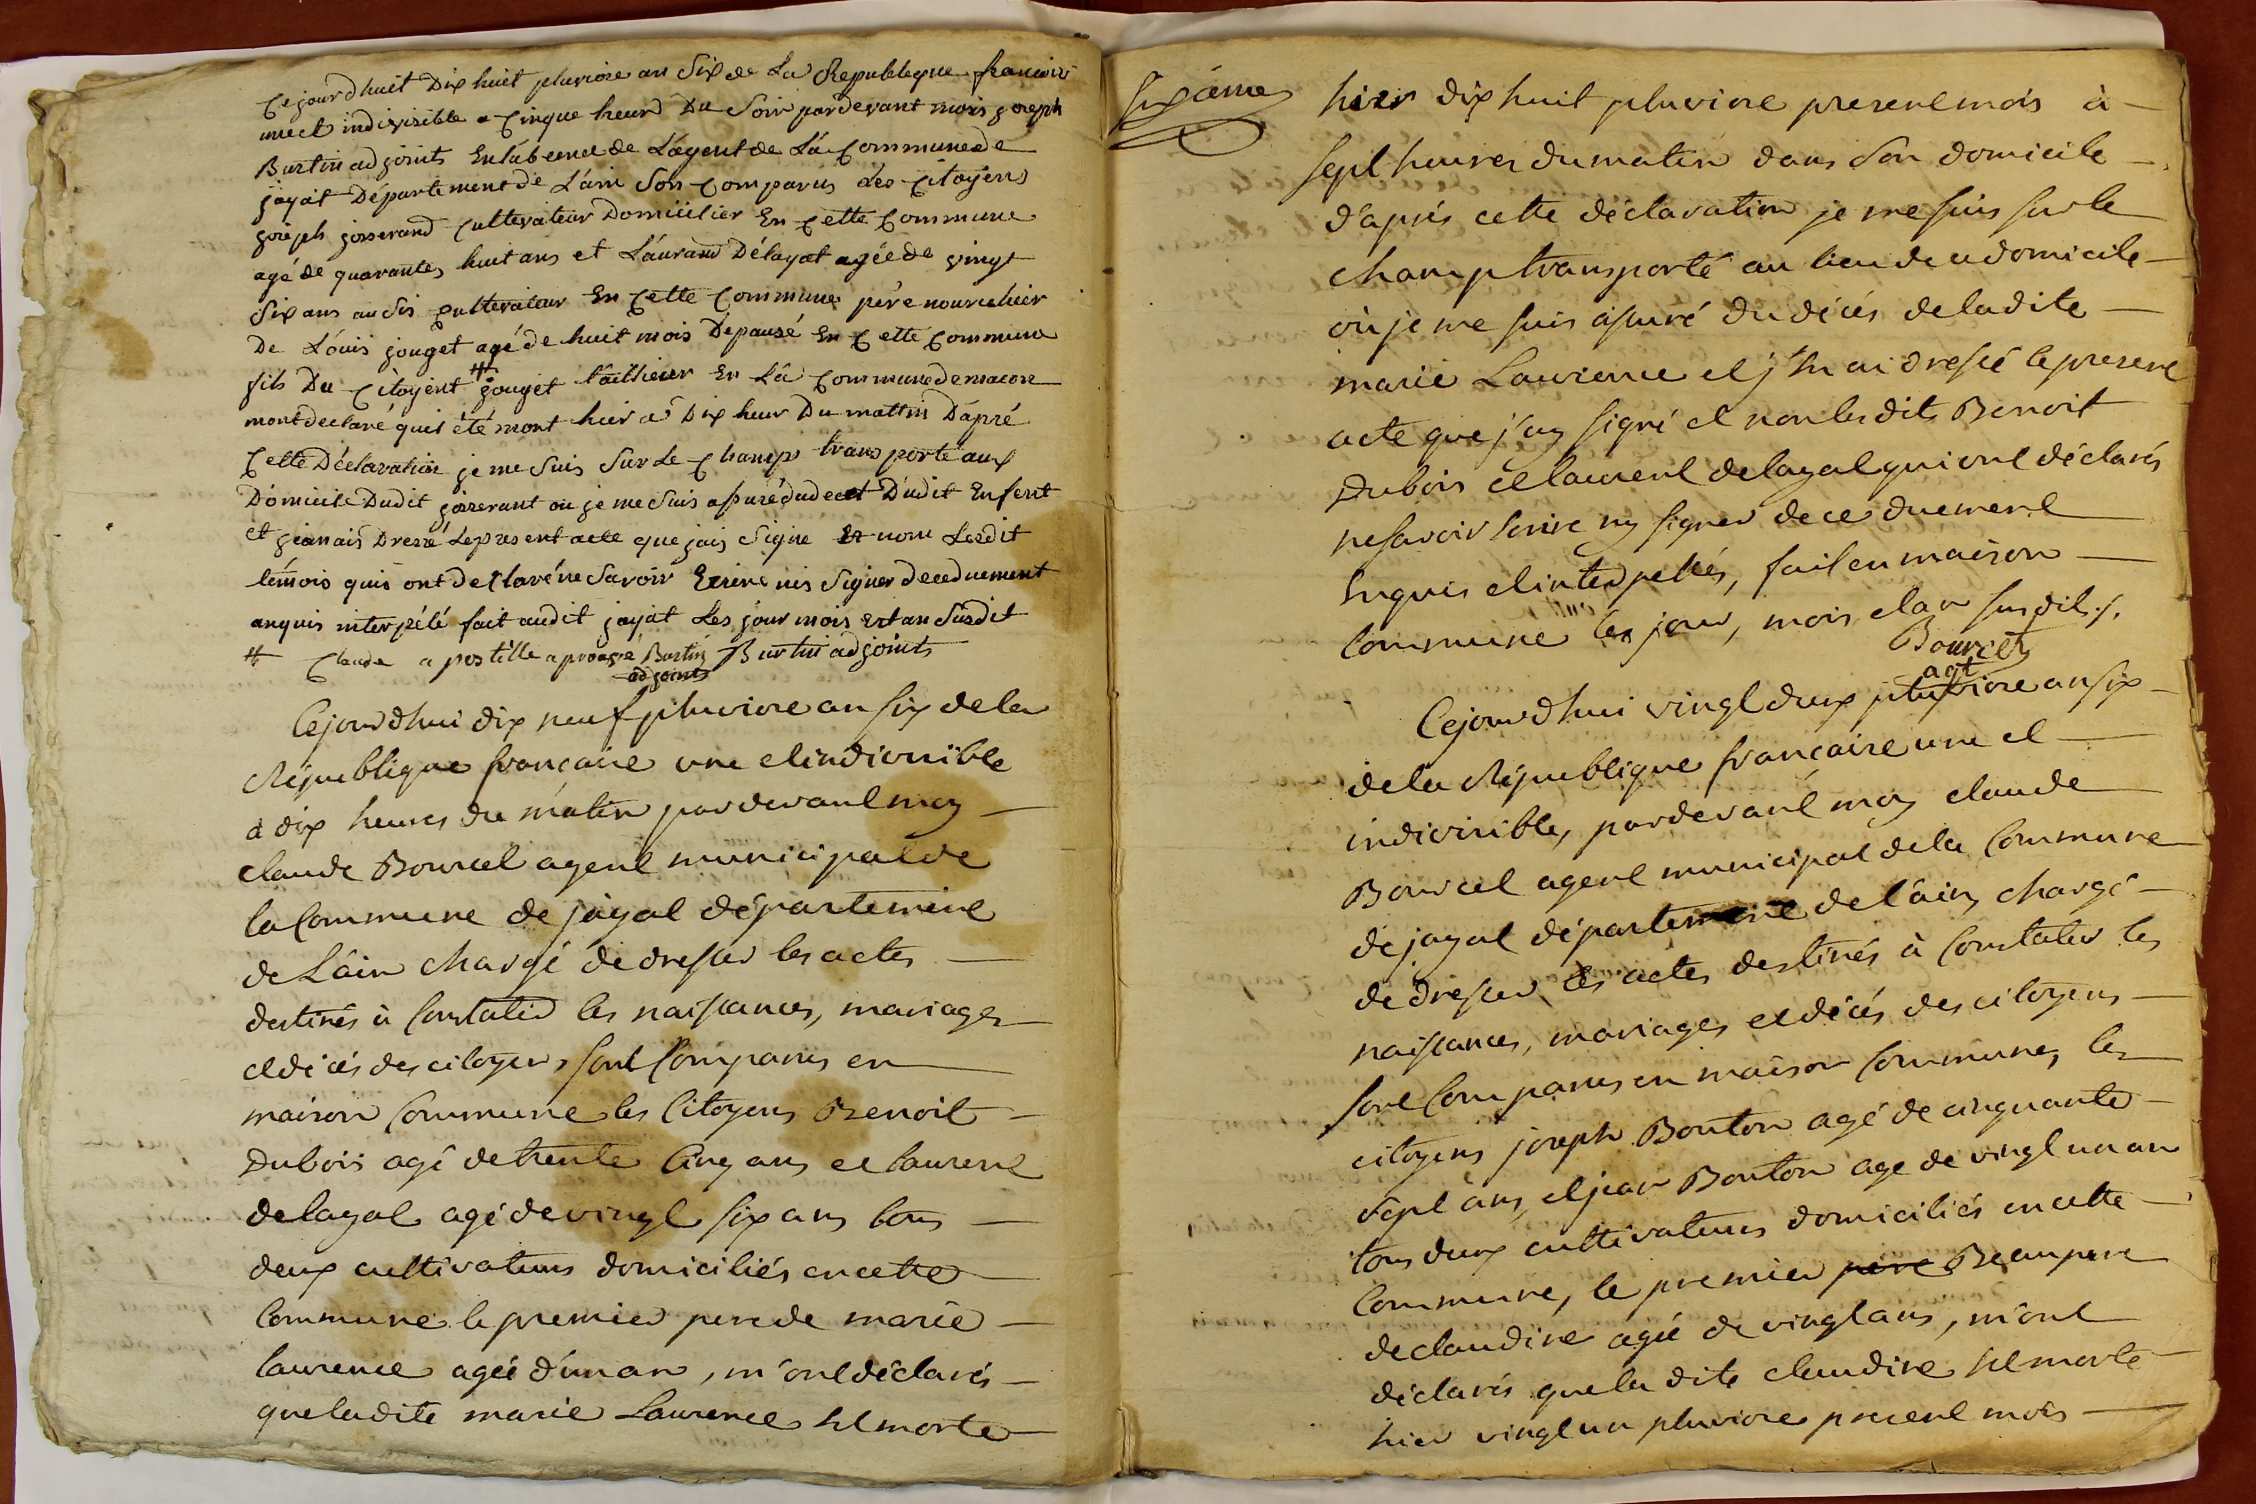 Ce jourd huit Dix huit pluviose an Six de La Republeque francoise
une et indivisible a Cinque heurs Du Soir pardevant mois joseph
Burtin adjoints En labcence de Lagent de La Commune de
jayat Département de L'ain Son Comparus des Citoyens
joseph josserand Cultevateur Domicilier En Cette Commune
agé de quarantes huit ans et Laurand Délayat agée de vingt
Six ans au Sis Cultevateur En Cette Commune père nourchier
De Louis jouget agé de huit mois Depausé En Cette Commune
fils Du Citoyent # jouget taillieur En La Commune de macon
mont declaré quil été mort hier a Dix heur Du mattin Dapré
Cette Déclaration je me Suis Sur Le Champs trans porté aux
Domicile Dudit josserant ou je me Suis assuré du decet Dudit Enfent
et jeanais Dressé Le present acte que jais Signe Et nom Lesdit
témois quis ont declaré ne Savoir Ecrire nis Signer de ce duement
anquis interpélé fait audit jayat Les jour mois Et an Susdit
# Claude a postille aprouvé Burtin Burtin adjoints
adjoints
Cejourdhui dix neuf pluviose an six de la
République francaise une et indivisible
à dix heures du matin pardevant moy
claude Bourcet agent municipal de
la Commune de jayat département
de L'ain chargé de dresser les actes
destinés à Constater les naissances, mariages
et décés des citoyens, sont Comparus en
maison Commune les Citoyens Benoit
Dubois agé de trente Cinq ans et laurent
delayat agé de vingt six ans tous
deux cultivateurs domiciliés en cette
Commune le premier pere de marie
laurence agée d'un an, m'ont déclarés
que ladite marie Laurence Est morte
sixième
hier dix huit pluviose present mois à
sept heures du matin dans Son domicile
d'après cette déclaration je me suis sur le
champ transporté au lieu de ce domicile
où je me suis assuré du décés de ladite
marie Laurence et j'En ai dressé le present
acte que j'ay signé et non lesdits Benoit
Dubois et laurent delayat qui ont déclarés
ne savoir Ecrire ny signer de ce duement
Enquis et interpellés, fait en maison
Commune les jour, mois et an susdits./.
Bourcet
agt
Cejourdhui vingt deux pluviose an six
de la République francaise une et
indivisible, pardevant moy claude
Bourcet agent municipal de la Commune
de jayat département de l'ain, chargé
de dresser les actes destinés à Constater les
naissances, mariages et décés des citoyens
sont Comparus en maison Commune, les
citoyens joseph Bouton agé de cinquante
sept ans, et jean Bouton agé de vingt un an
tous deux cultivateurs domiciliés en cette
Commune, le premier pere Beaupere
de claudine agée de vingt ans, m'ont
déclarés que la dite claudine Est morte
hier vingt un pluviose present mois